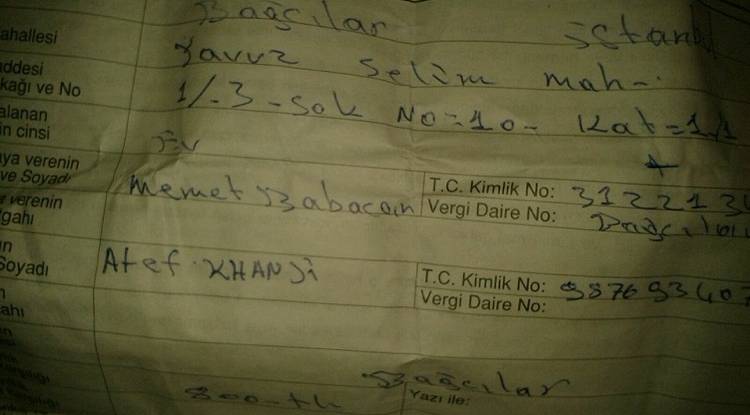 Bağcılar istanl
ahallesi
Yavuz Selim mah-.
ddesi
kağı ve No
1/-3-Sok No=10- Kat=1/1
alanan
in cinsi
Ev
ya verenin
ve Soyadı
Memet Babacan T.C. Kimlik No: 312213
verenin
gahı
Vergi Daire No: Bağcılar
Soyadı
Atef KHANJi T.C. Kimlik No: 98769340
Vergi Daire No:
ahı
Bağcılar
800-tl Yazı ile: